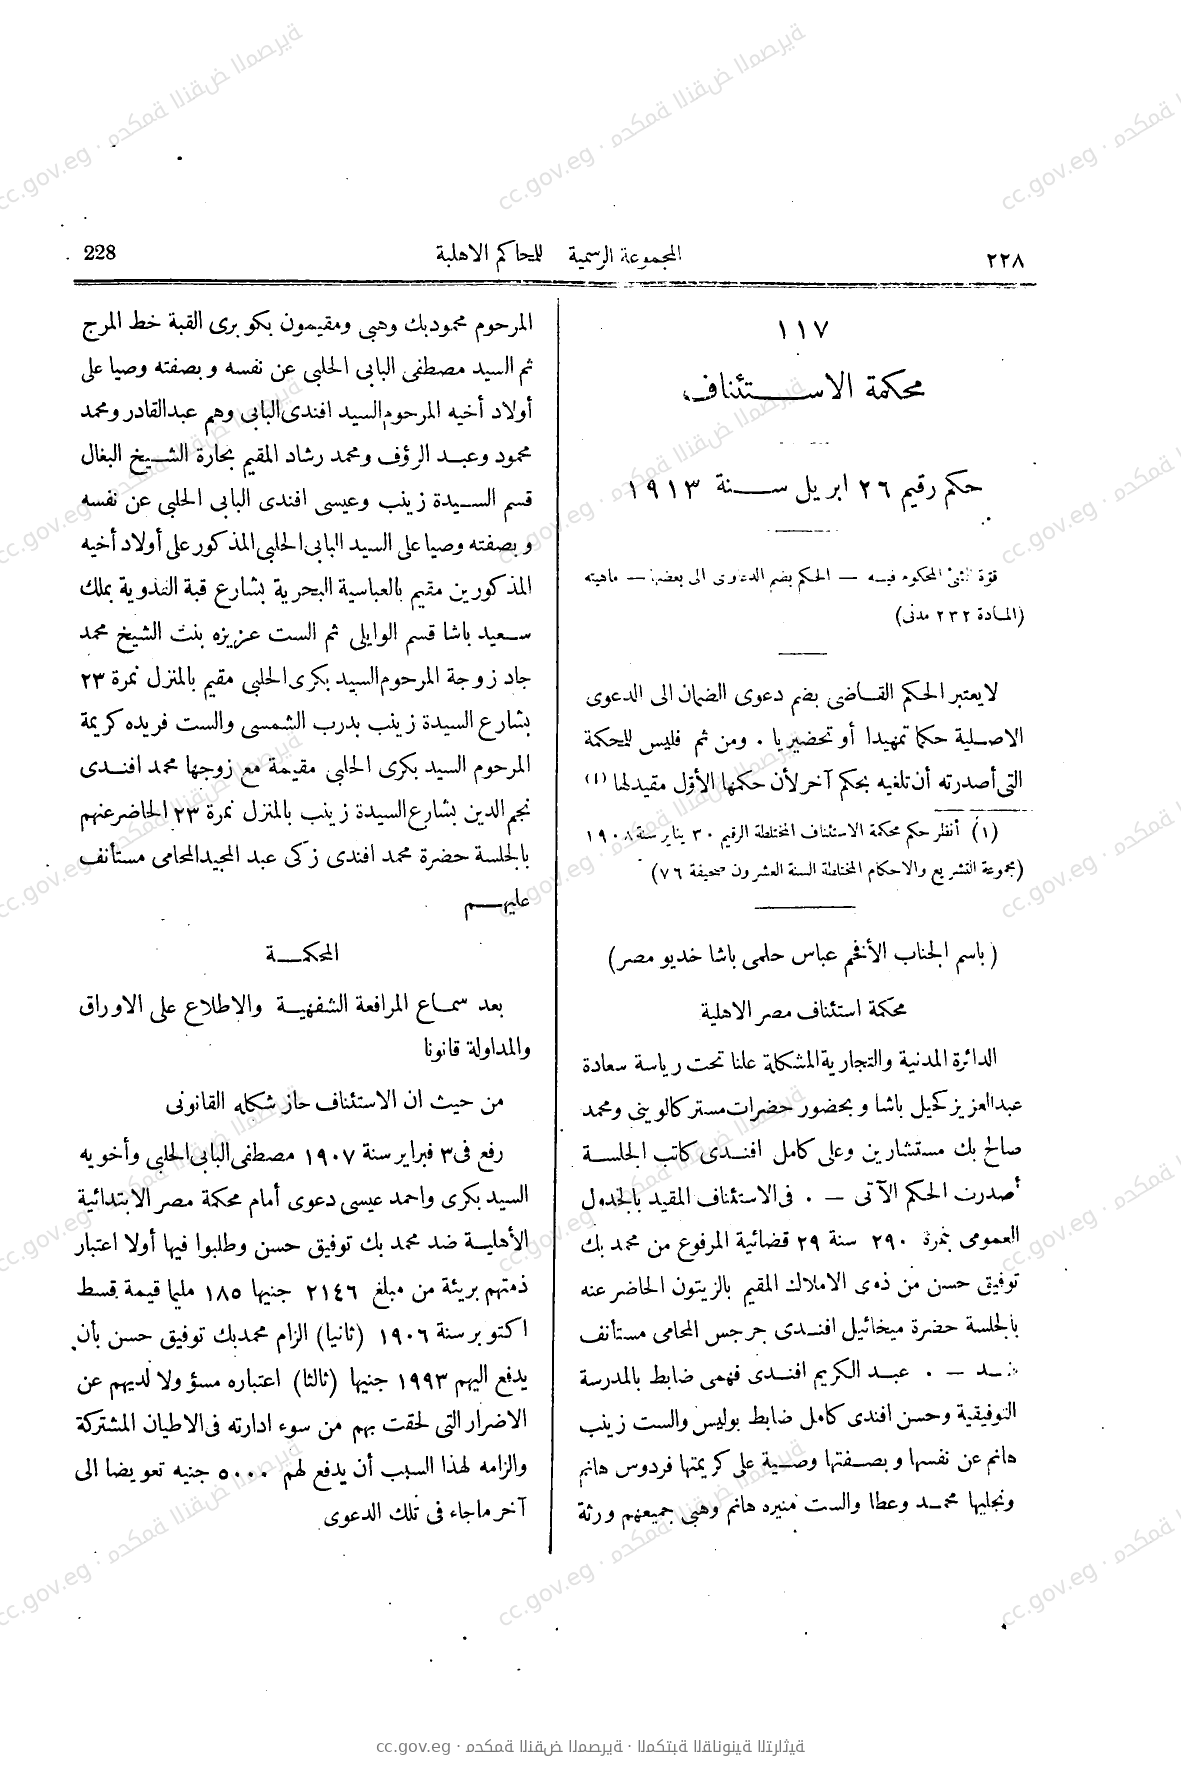 ٢٢٨
المجموعة الرسمية للمحاكم الاهلية
228
١١٧
محكمة الاستئناف
حكم رقيم ٢٦ ابريل سنة ١٩١٣
قوّة الشئ المحكوم فيه — الحكم بضم الدعاوى الى بعضها — ماهيته
(المادة ٢٣٢ مدنى)
لا يعتبر الحكم القاضى بضم دعوى الضمان الى الدعوى
الاصلية حكما تمهيدا أو تحضيريا . ومن ثم فليس للمحكمة
التى أصدرته أن تلغيه بحكم آخر لأن حكمها الأوّل مقيد لها (١)
(١) أنظر حكم محكمة الاستئناف المختلطة الرقيم ٣٠ يناير سنة ١٩٠٨
(مجموعة التشريع والاحكام المختلطة السنة العشرون صحيفة ٧٦)
(باسم الجناب الأفخم عباس حلمى باشا خديو مصر)
محكمة استئناف مصر الاهلية
الدائرة المدنية والتجارية المشكلة علنا تحت رياسة سعادة
عبد العزيز كحيل باشا و بحضور حضرات مستر كالوينى ومحمد
صالح بك مستشارين وعلى كامل افندى كاتب الجلسة
أصدرت الحكم الآتى — . فى الاستئناف المقيد بالجدول
العمومى بنمرة ٢٩٠ سنة ٢٩ قضائية المرفوع من محمد بك
توفيق حسن من ذوى الاملاك المقيم بالزيتون الحاضر عنه
بالجلسة حضرة ميخائيل افندى جرجس المحامى مستأنف
ضد — . عبد الكريم افندى فهمى ضابط بالمدرسة
التوفيقية وحسن افندى كامل ضابط بوليس والست زينب
هانم عن نفسها و بصفتها وصية على كريمتها فردوس هانم
ونجليها محمد وعطا والست منيره هانم وهبى جميعهم ورثة
المرحوم محمود بك وهبى ومقيمون بكوبرى القبة خط المرج
ثم السيد مصطفى البابى الحلبى عن نفسه و بصفته وصيا على
أولاد أخيه المرحوم السيد افندى البابى وهم عبد القادر ومحمد
محمود وعبد الرؤف ومحمد رشاد المقيم بحارة الشيخ البغال
قسم السيدة زينب وعيسى افندى البابى الحلبى عن نفسه
و بصفته وصيا على السيد البابى الحلبى المذكور على أولاد أخيه
المذكورين مقيم بالعباسية البحرية بشارع قبة الفدوية بملك
سعيد باشا قسم الوايلى ثم الست عزيزه بنت الشيخ محمد
جاد زوجة المرحوم السيد بكرى الحلبى مقيم بالمنزل نمرة ٢٣
بشارع السيدة زينب بدرب الشمسى والست فريده كريمة
المرحوم السيد بكرى الحلبى مقيمة مع زوجها محمد افندى
نجم الدين بشارع السيدة زينب بالمنزل نمرة ٢٣ الحاضر عنهم
بالجلسة حضرة محمد افندى زكى عبد المجيد المحامى مستأنف
عليهم
المحكمة
بعد سماع المرافعة الشفهية والاطلاع على الاوراق
والمداولة قانونا
من حيث ان الاستئناف حاز شكله القانونى
رفع فى ٣ فبراير سنة ١٩٠٧ مصطفى البابى الحلبى وأخويه
السيد بكرى واحمد عيسى دعوى أمام محكمة مصر الابتدائية
الأهلية ضد محمد بك توفيق حسن وطلبوا فيها أولا اعتبار
ذمتهم بريئة من مبلغ ٢١٤٦ جنيها ١٨٥ مليما قيمة قسط
اكتوبر سنة ١٩٠٦ (ثانيا) الزام محمد بك توفيق حسن بأن
يدفع اليهم ١٩٩٣ جنيها (ثالثا) اعتباره مسؤولا لديهم عن
الاضرار التى لحقت بهم من سوء ادارته فى الاطيان المشتركة
والزامه لهذا السبب أن يدفع لهم ٥٠٠٠ جنيه تعويضا الى
آخر ماجاء فى تلك الدعوى
cc.gov.eg · محكمة النقض المصرية · المكتبة القانونية التراثية